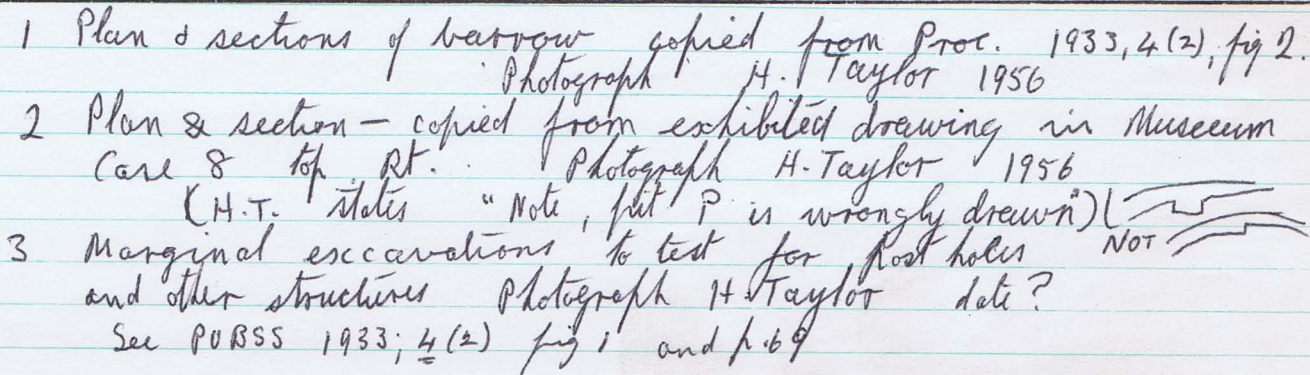 1 Plan & sections of barrow copied from Proc. 1933, 4(2), fig 2.
Photograph H. Taylor 1956
2 Plan & section - copied from exhibited drawing in Museeum
Case 8 top Rt. Photograph H. Taylor 1956
(H.T. states "Note, pit P is wrongly drawn") (
NOT
3 Marginal exccavations to test for Post holes
and other structures Photograph H. Taylor date?
See PUBSS 1933; 4(2) fig 1 and p.69